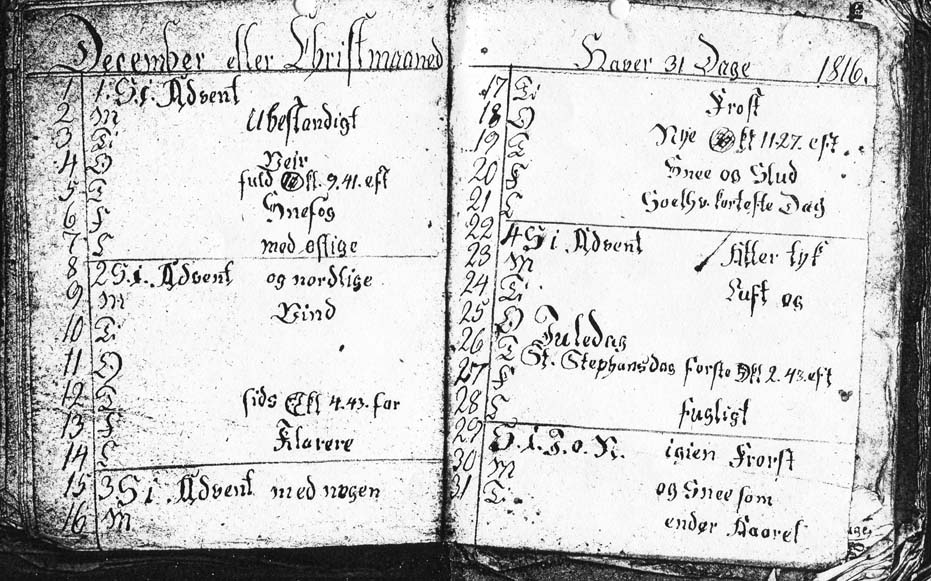 December eller Christmaaned
1 1. S. i. Advent
2 M Ubestandigt
3 Ti
4 O Veir
fuld kl. 9.41. eft
5 T Snefog
6 F
7 L med østlige
8 2 S. i. Advent og nordlige
9 M Vind
10 Ti
11 O
12 T sids kl 4.43. for
13 F Klarere
14 L
15 3 S i Advent med nogen
16 M
Haver 31 Dage 1816.
17 Ti Frost
18 O
19 T Nye kl 11.27. eft
20 F Snee og Slud
21 L Soelhv. korteste Dag
22 4 S i Advent Atter tyk
23 M
24 Ti Luft og
25 O Juledag
26 T St. Stephansdag første kl 2. 43. eft
27 F
28 L fugligt
29 S. i. J. o. N. igien Frorst
30 M og Snee som
31 T ender Aaret